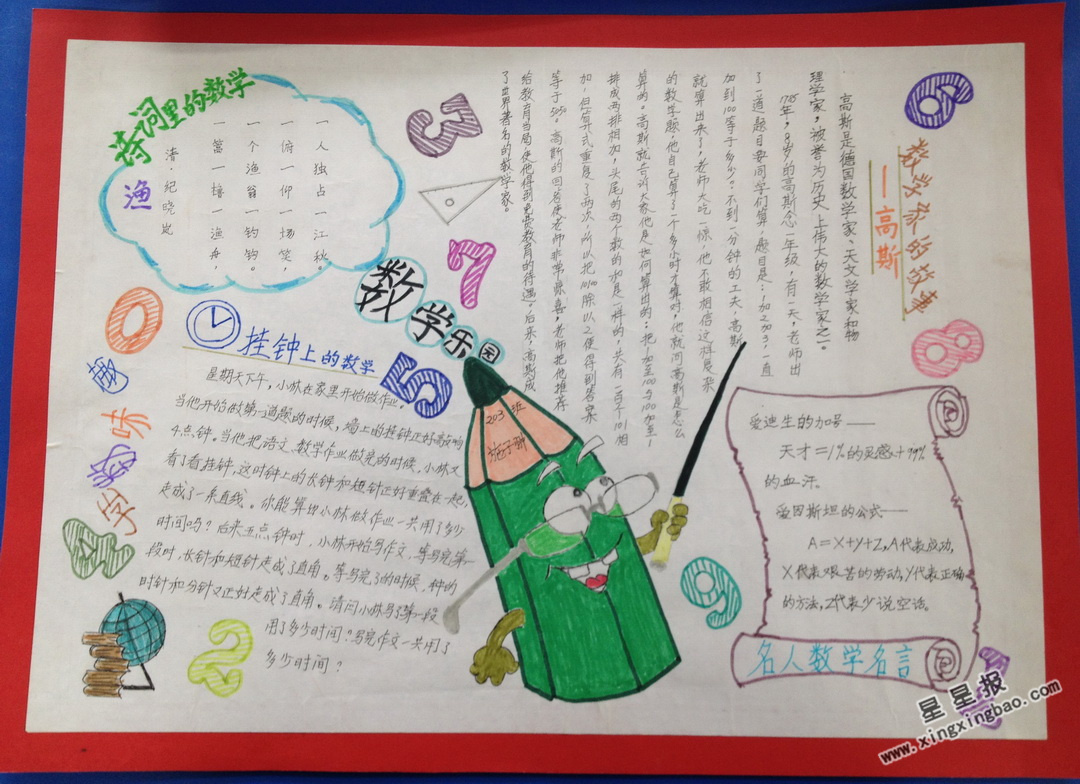 诗词里的数学
渔
清·纪晓岚
一篙一橹一渔舟，
一个渔翁一钓钩。
一俯一仰一场笑，
一人独占一江秋。
数学乐园
203班
数学家的故事
——高斯
高斯是德国数学家、天文学家和物
理学家，被誉为历史上伟大的数学家之一。
1785年，8岁的高斯念一年级，有一天，老师出
了一道题目要同学们算，题目是：1加2加3，一直
加到100等于多少。不到一分钟的工夫，高斯
就算出来了，老师大吃一惊，他不敢相信这样复杂
的数学题，他自己算了一个多小时才算对，他就问高斯是怎么
算的。高斯就告诉大家他是如何算出的：把1加至100与100加至1
排成两排相加，头尾的两个数的和是一样的，共有一百个101相
加，但算式重复了两次，所以把10100除以2便得到答案
等于5050。高斯的回答使老师非常惊喜，老师把他推荐
给教育当局，使他得到免费教育的待遇。后来，高斯成
了世界著名的数学家。
趣味数学
挂钟上的数学
星期天下午，小林在家里开始做作业。
当他开始做第一道题的时候，墙上的挂钟正好敲响
4点钟。当他把语文、数学作业做完的时候，小林又
看了看挂钟，这时钟上的长钟和短针正好重叠在一起，
走成了一条直线。你能算出小林做作业一共用了多少
时间吗？后来五点钟时，小林开始写作文，等写完第一
段时，长针和短针走成了直角。等写完了的时候，钟的
时针和分针又正好走成了直角。请问小林写了第一段
用了多少时间？写完作文一共用了
多少时间？
爱迪生的加号——
天才=1%的灵感+99%
的血汗。
爱因斯坦的公式——
A=X+Y+Z，A代表成功，
X代表艰苦的劳动，Y代表正确
的方法，Z代表少说空话。
名人数学名言
3
7
5
0
4
2
6
8
9
1
星星报
www.xingxingbao.com